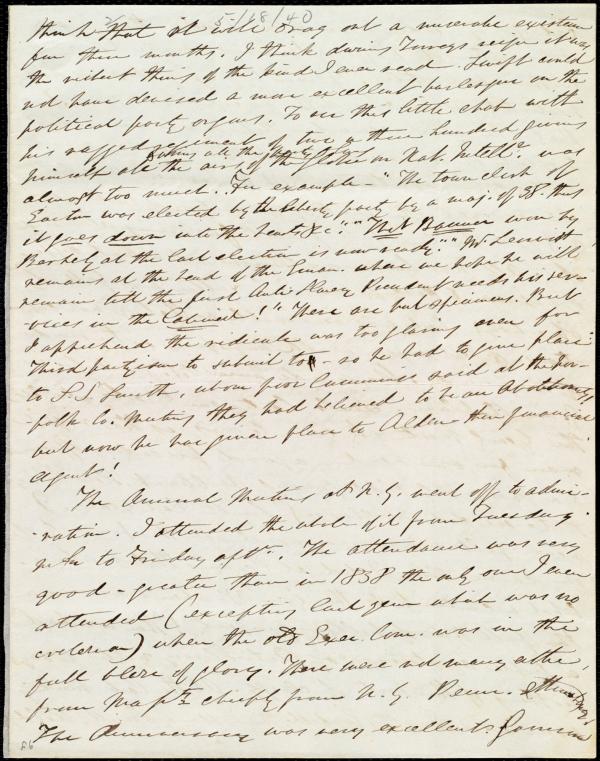 5/18/40
think that it will drag out a miserable existence
for three months. I think during Torreys reign it was
the richest thing of the kind I ever read. Swift could
not have devised a more excellent burlesque on the
political party organs. To see this little chat with
his ragged regiment of two or three hundred
himself all the airs of the Globe or Nat. Intell.r was
putting all the party
almost too much. For example - "The town clerk of
Easton was elected by the liberty party by a maj. of 38. thus
it goes down into the &c." "The Banner won by
at the last election is now ready." "Mr Leavitt
remains at the head of the Eman. where we hope he will
remain till the first Anti Slavery President needs his ser-
-vices in the Cabinet!" These are but specimens. But
I apprehend the ridicule was too glaring even for
Third partyism to submit to - so he had to give place
to S. S. Smith, whom poor Cummings said at the Nor-
-folk Co. Meeting they had believed to be an Abolitionist,
but now he has given place to Alden their financial
agent!
The Annual Meeting at N.Y. went off to admi-
-ration. I attended the whole of it from Tuesday
to Friday aft.n. The attendance was very
good - greater than in 1838 the only one I ever
attended (excepting last year which was no
criterion) when the old Exec. Com. was in the
full blaze of glory. There were not many either,
from Mass.tts chiefly from N.Y. Penn.
The Anniversary was very excellent. Garrison